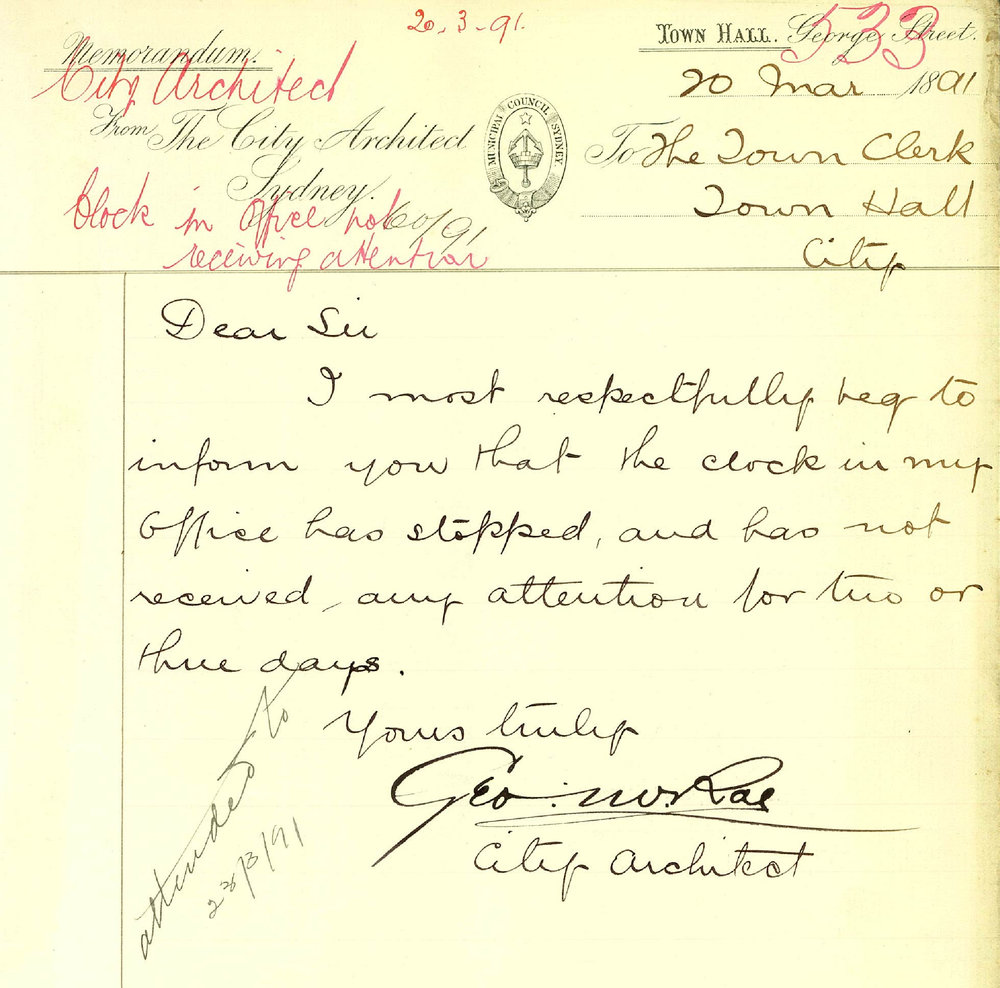 20.3.91.
533
Memorandum.
TOWN HALL. George Street.
City Architect
20 Mar 1891
MUNICIPAL COUNCIL SYDNEY
From The City Architect
To The Town Clerk
Sydney.
Town Hall
Clock in Office not
60/91
receiving attention
City
Dear Sir
I most respectfully beg to
inform you that the clock in my
Office has stopped, and has not
received, any attention for two or
three days.
Yours truly
Geo. McRae
City Architect
attended to
23/3/91